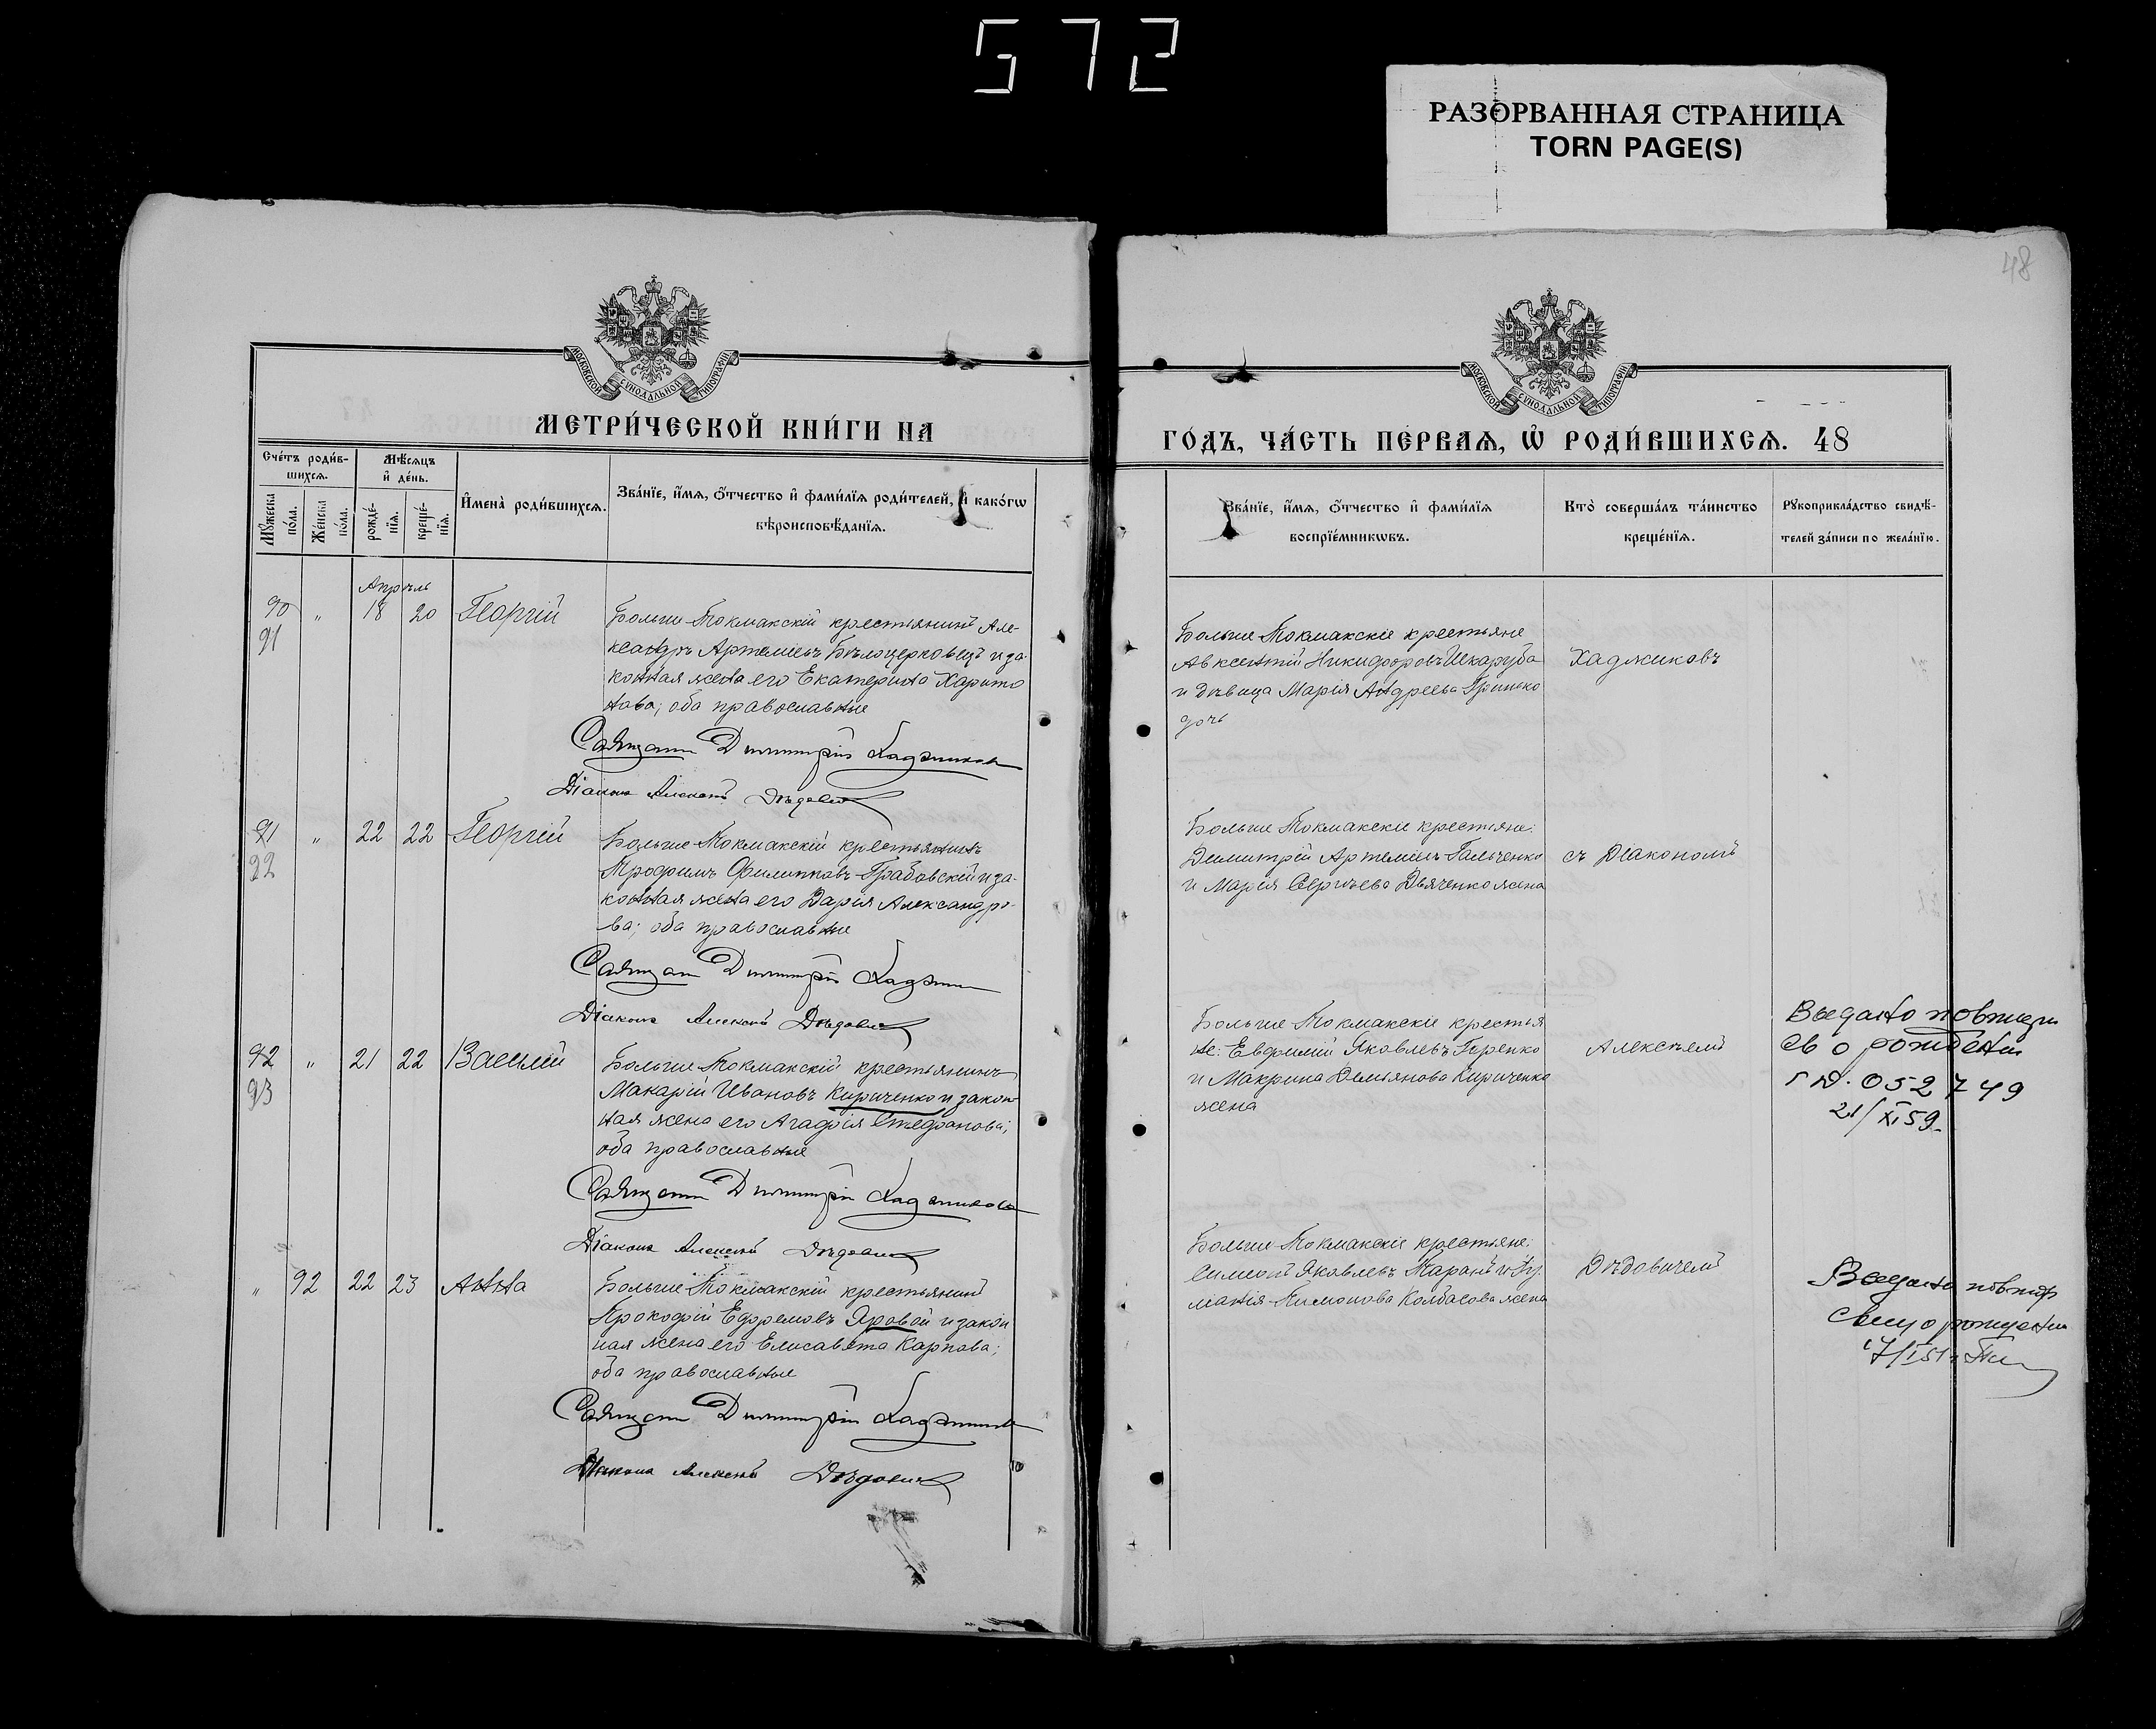 572
РАЗОРВАННАЯ СТРАНИЦА
TORN PAGE(S)
48
МОСКОВСКОЙ СѴНОДАЛЬНОЙ ТИПОГРАФІИ
МЕТРИ́ЧЕСКОЙ КНИ́ГИ НА
Сче́тъ роди́в-
шихсѧ.
Мѣ́сѧцъ
и҆ де́нь.
Мꙋ́жеска
по́ла.
Же́нска
по́ла.
рожде́-
нїѧ.
креще́-
нїѧ.
И҆мена̀ роди́вшихсѧ.
Зва́нїе, и҆́мѧ, ѻ҆́тчество и҆ фами́лїѧ роди́телей, и҆ како́гѡ
вѣроисповѣ́данїѧ.
Апрѣль
90 " 18 20 Георгій
91
Больше-Токмакскій крестьянинъ Але-
ксандръ Артеміевъ Бѣлоцерковецъ и за-
конная жена его Екатерина Харито
нова; оба православные
Священ Димитрій Хаджиковъ
Діаконъ Алексѣй Дѣдович
91 " 22 22 Георгій
92
Больше-Токмакскій крестьянинъ
Трофимъ Филипповъ Грабовскій и за-
конная жена его Дарія Александро-
ва; оба православные
Священ Димитрій Хаджи
Діаконъ Алексѣй Дѣдович
92 " 21 22 Василій
93
Больше Токмакскій крестьянинъ
Макарій Ивановъ Кириченко и закон-
ная жена его Агафія Стефанова;
оба православные
Священ Димитрій Хаджикова
Діаконъ Алексѣй Дѣдович
" 92 22 23 Анна
Больше-Токмакскій крестьянинъ
Прокофій Ефремовъ Яровой и закон
ная жена его Елисавета Карпова;
оба православные
Священ Димитрій Хаджиков
Діаконъ Алексѣй Дѣдович
МОСКОВСКОЙ СѴНОДАЛЬНОЙ ТИПОГРАФІИ
ГО́ДЪ, ЧА́СТЬ ПЕ́РВАѦ, Ѡ҆ РОДИ́ВШИХСѦ. 48
Зва́нїе, и҆́мѧ, ѻ҆́тчество и҆ фами́лїѧ
воспрїе́мникѡвъ.
Кто̀ соверша́лъ та́инство
креще́нїѧ.
Рꙋкоприкла́дство свидѣ́-
телей за́писи по жела́нїю.
Больше Токмакскіе крестьяне
Авксентій Никифоровъ Шкаруба
и дѣвица Марія Андреева Гринько
дочь
Хаджиковъ
Больше Токмакскіе крестьяне:
Димитрій Артеміевъ Гальченко
и Марія Сергѣева Дьяченко жена
съ Діакономъ
Больше Токмакскіе крестья
не: Евфимій Яковлевъ Гиренко
и Макрина Демьянова Кириченко
жена
Алексѣемъ
Выдано повторн
св о рождении
г D. 052749
21/XI 59
Больше Токмакскіе крестьяне:
Симеонъ Яковлевъ Таранъ и
Тимонова Колбасова жена
Дѣдовичемъ
Выдано повтор
свид о рождении